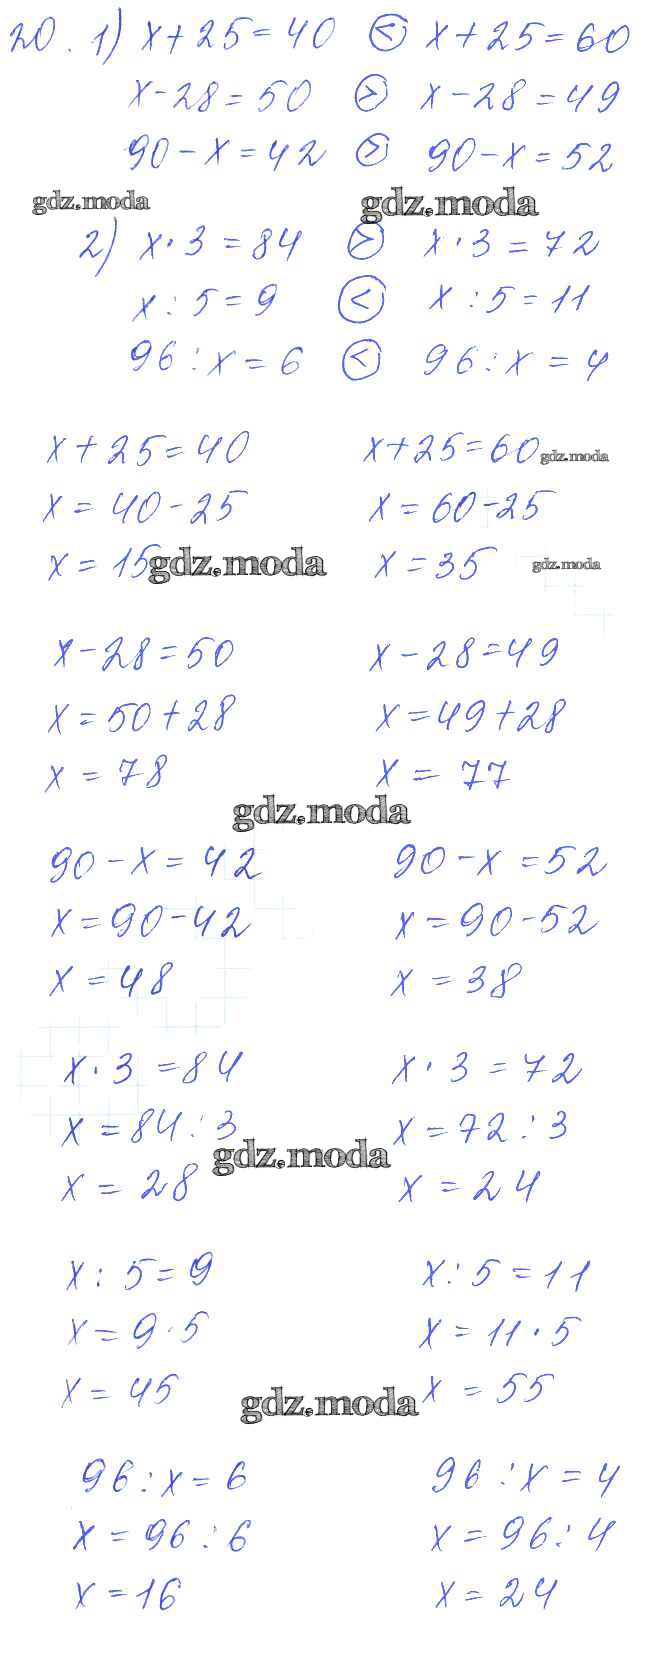 20. 1) x+25=40 < x+25=60
x-28=50 > x-28=49
90-x=42 > 90-x=52
gdz.moda gdz.moda
2) x·3=84 > x·3=72
x:5=9 < x:5=11
96:x=6 < 96:x=4
x+25=40 x+25=60 gdz.moda
x=40-25 x=60-25
x=15 gdz.moda x=35 gdz.moda
x-28=50 x-28=49
x=50+28 x=49+28
x=78 x=77
gdz.moda
90-x=42 90-x=52
x=90-42 x=90-52
x=48 x=38
x·3=84 x·3=72
x=84:3 x=72:3
gdz.moda
x=28 x=24
x:5=9 x:5=11
x=9·5 x=11·5
x=45 gdz.moda x=55
96:x=6 96:x=4
x=96:6 x=96:4
x=16 x=24